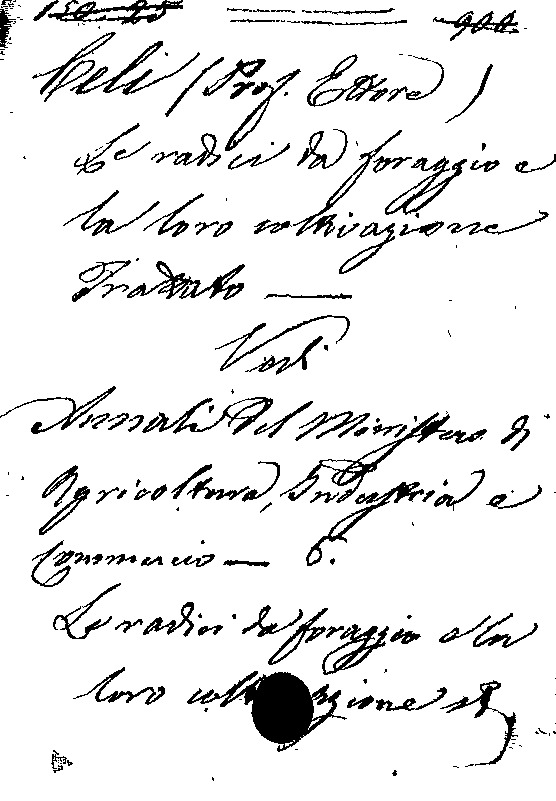 150. 25 900.
Celi (Prof. Ettore)
Le radici da foraggio e
la loro coltivazione
Trattato —
Vedi
Annali del Ministero di
Agricoltura, Industria e
Commercio — 6.
Le radici da foraggio e la
loro colt zione